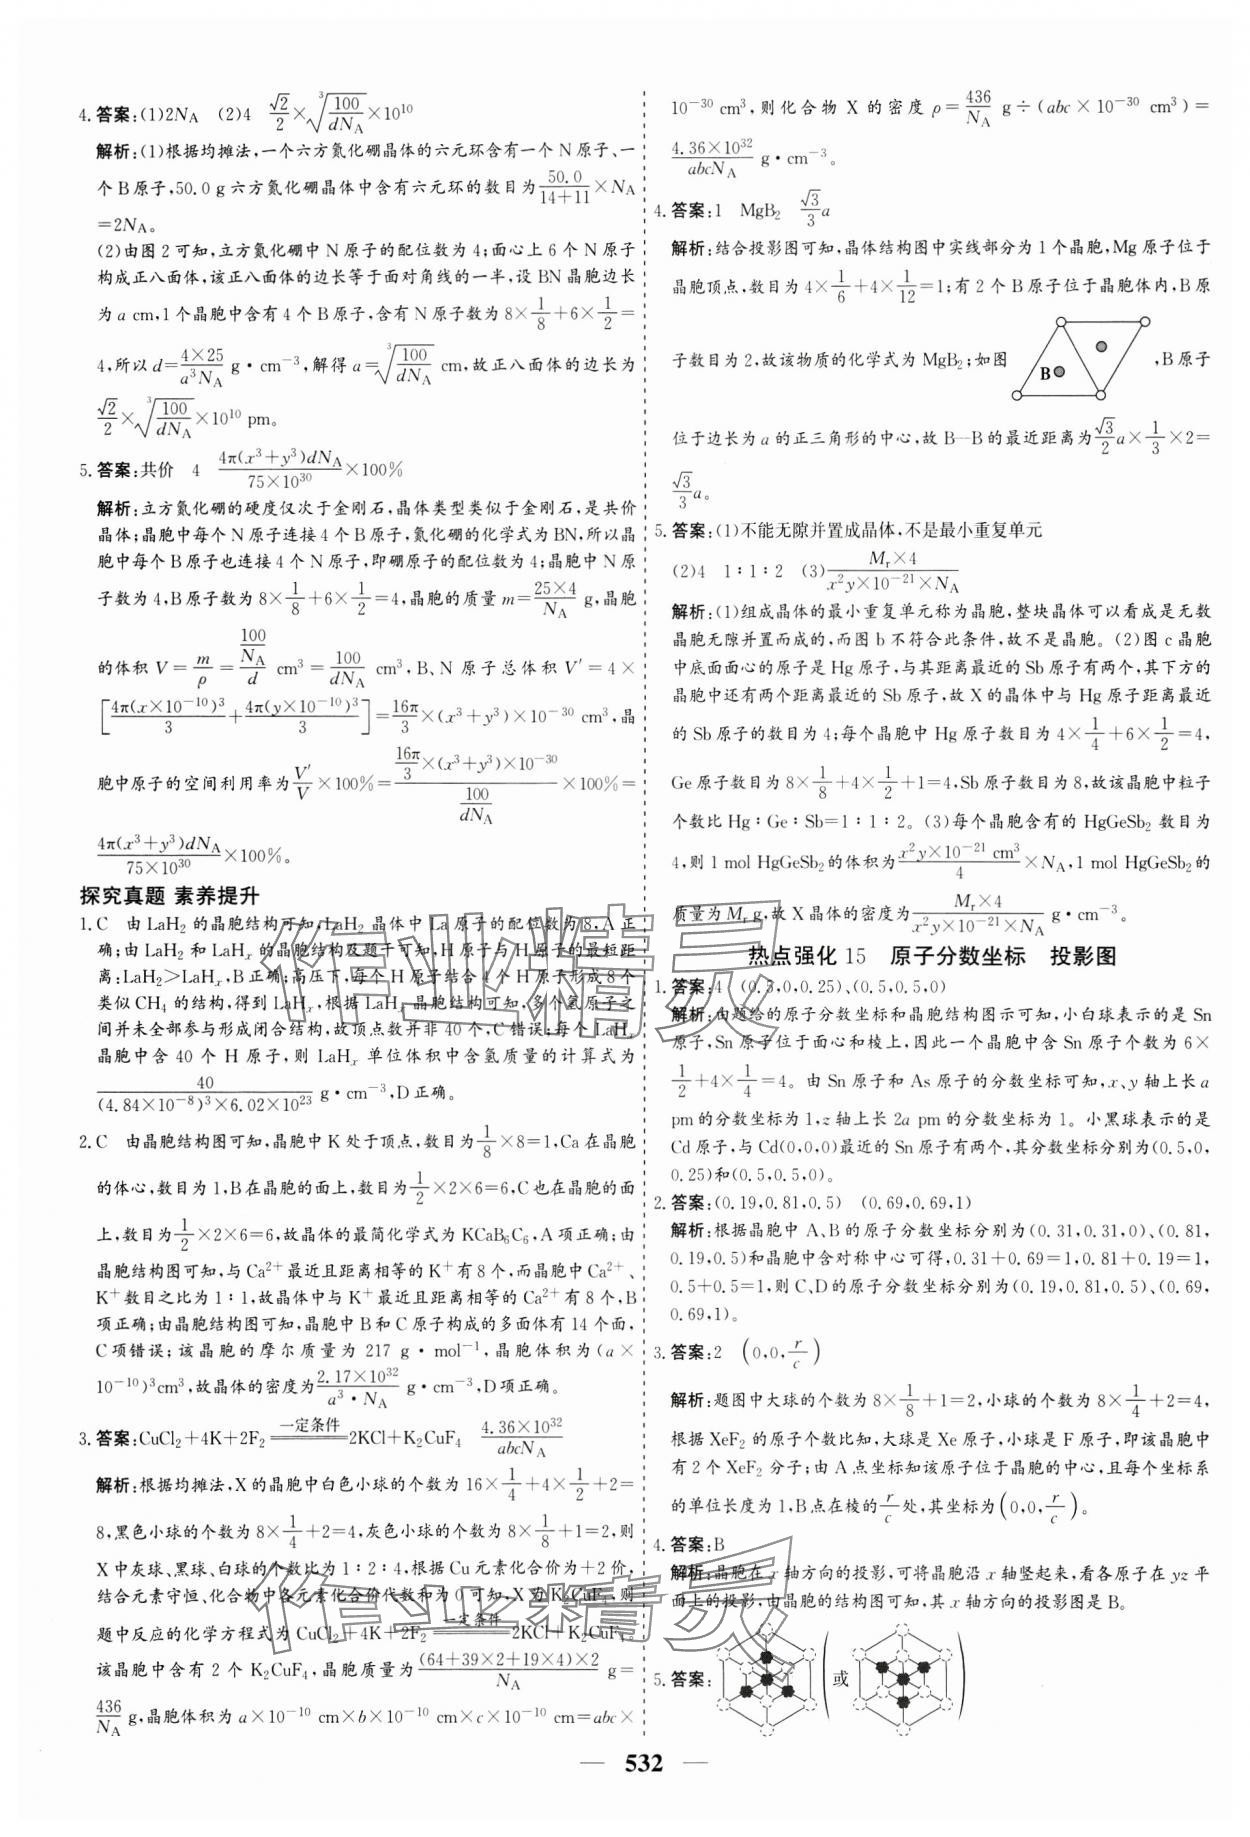 4.答案:(1)2N_A　(2)4　√2/2×∛(100/(dN_A))×10^10
解析:(1)根据均摊法,一个六方氮化硼晶体的六元环含有一个 N 原子、一
个B原子,50.0 g六方氮化硼晶体中含有六元环的数目为50.0/(14+11)×N_A
=2N_A。
(2)由图 2 可知,立方氮化硼中 N 原子的配位数为 4;面心上 6 个 N 原子
构成正八面体,该正八面体的边长等于面对角线的一半,设 BN晶胞边长
为 a cm,1个晶胞中含有 4 个B原子,含有 N 原子数为 8×1/8+6×1/2=
4,所以 d=(4×25)/(a³N_A) g·cm⁻³,解得 a=∛(100/(dN_A)) cm,故正八面体的边长为
√2/2×∛(100/(dN_A))×10^10 pm。
5.答案:共价　4　4π(x³+y³)dN_A/(75×10^30)×100%
解析:立方氮化硼的硬度仅次于金刚石,晶体类型类似于金刚石,是共价
晶体;晶胞中每个 N 原子连接 4 个 B 原子,氮化硼的化学式为 BN,所以晶
胞中每个 B 原子也连接 4 个 N 原子,即硼原子的配位数为 4;晶胞中 N 原
子数为 4,B原子数为 8×1/8+6×1/2=4,晶胞的质量 m=(25×4)/N_A g,晶胞
的体积 V=m/ρ=(100/N_A)/d cm³=100/(dN_A) cm³,B、N 原子总体积 V′=4×
[4π(x×10⁻¹⁰)³/3+4π(y×10⁻¹⁰)³/3]=16π/3×(x³+y³)×10⁻³⁰ cm³,晶
胞中原子的空间利用率为V′/V×100%=(16π/3×(x³+y³)×10⁻³⁰)/(100/(dN_A))×100%=
4π(x³+y³)dN_A/(75×10^30)×100%。
探究真题 素养提升
1.C　由 LaH₂ 的晶胞结构可知,LaH₂ 晶体中 La 原子的配位数为 8,A 正
确;由 LaH₂ 和 LaHₓ 的晶胞结构及题干可知,H 原子与 H 原子的最短距
离:LaH₂>LaHₓ,B正确;高压下,每个 H 原子结合 4 个 H 原子形成 8 个
类似 CH₄ 的结构,得到 LaHₓ,根据 LaHₓ 晶胞结构可知,多个氢原子之
间并未全部参与形成闭合结构,故顶点数并非 40 个,C 错误;每个 LaHₓ
晶胞中含 40 个 H 原子,则 LaHₓ 单位体积中含氢质量的计算式为
40/((4.84×10⁻⁸)³×6.02×10²³) g·cm⁻³,D 正确。
2.C　由晶胞结构图可知,晶胞中 K 处于顶点,数目为1/8×8=1,Ca 在晶胞
的体心,数目为 1,B在晶胞的面上,数目为1/2×2×6=6,C也在晶胞的面
上,数目为1/2×2×6=6,故晶体的最简化学式为 KCaB₆C₆,A 项正确;由
晶胞结构图可知,与 Ca²⁺最近且距离相等的 K⁺有 8 个,而晶胞中 Ca²⁺、
K⁺数目之比为 1∶1,故晶体中与 K⁺最近且距离相等的 Ca²⁺有 8 个,B
项正确;由晶胞结构图可知,晶胞中 B 和 C 原子构成的多面体有 14 个面,
C 项错误;该晶胞的摩尔质量为 217 g·mol⁻¹,晶胞体积为(a×
10⁻¹⁰)³cm³,故晶体的密度为(2.17×10³²)/(a³·N_A) g·cm⁻³,D项正确。
3.答案:CuCl₂+4K+2F₂ =一定条件= 2KCl+K₂CuF₄　(4.36×10³²)/(abcN_A)
解析:根据均摊法,X 的晶胞中白色小球的个数为 16×1/4+4×1/2+2=
8,黑色小球的个数为 8×1/4+2=4,灰色小球的个数为 8×1/8+1=2,则
X 中灰球、黑球、白球的个数比为 1∶2∶4,根据 Cu 元素化合价为+2 价,
结合元素守恒,化合物中各元素化合价代数和为 0 可知,X 为 K₂CuF₄,则
题中反应的化学方程式为 CuCl₂+4K+2F₂ =一定条件= 2KCl+K₂CuF₄。
该晶胞中含有 2 个 K₂CuF₄,晶胞质量为((64+39×2+19×4)×2)/N_A g=
436/N_A g,晶胞体积为 a×10⁻¹⁰ cm×b×10⁻¹⁰ cm×c×10⁻¹⁰ cm=abc×
10⁻³⁰ cm³,则化合物 X 的密度 ρ=436/N_A g÷(abc×10⁻³⁰ cm³)=
(4.36×10³²)/(abcN_A) g·cm⁻³。
4.答案:1　MgB₂　√3/3a
解析:结合投影图可知,晶体结构图中实线部分为 1 个晶胞,Mg 原子位于
晶胞顶点,数目为 4×1/6+4×1/12=1;有 2 个 B原子位于晶胞体内,B 原
子数目为 2,故该物质的化学式为 MgB₂;如图 B ,B 原子
位于边长为 a 的正三角形的中心,故 B—B的最近距离为√3/2a×1/3×2=
√3/3a。
5.答案:(1)不能无隙并置成晶体,不是最小重复单元
(2)4　1∶1∶2　(3)(Mᵣ×4)/(x²y×10⁻²¹×N_A)
解析:(1)组成晶体的最小重复单元称为晶胞,整块晶体可以看成是无数
晶胞无隙并置而成的,而图 b 不符合此条件,故不是晶胞。(2)图 c 晶胞
中底面面心的原子是 Hg 原子,与其距离最近的 Sb 原子有两个,其下方的
晶胞中还有两个距离最近的 Sb 原子,故 X 的晶体中与 Hg 原子距离最近
的 Sb 原子的数目为 4;每个晶胞中 Hg 原子数目为 4×1/4+6×1/2=4,
Ge 原子数目为 8×1/8+4×1/2+1=4,Sb 原子数目为 8,故该晶胞中粒子
个数比 Hg∶Ge∶Sb=1∶1∶2。(3)每个晶胞含有的 HgGeSb₂ 数目为
4,则 1 mol HgGeSb₂的体积为(x²y×10⁻²¹ cm³)/4×N_A,1 mol HgGeSb₂的
质量为 Mᵣ g,故 X 晶体的密度为(Mᵣ×4)/(x²y×10⁻²¹×N_A) g·cm⁻³。
热点强化 15　原子分数坐标　投影图
1.答案:4　(0.5,0,0.25)、(0.5,0.5,0)
解析:由题给的原子分数坐标和晶胞结构图示可知,小白球表示的是 Sn
原子,Sn 原子位于面心和棱上,因此一个晶胞中含 Sn 原子个数为 6×
1/2+4×1/4=4。由 Sn 原子和 As 原子的分数坐标可知,x、y 轴上长 a
pm的分数坐标为 1,z 轴上长 2a pm的分数坐标为 1。小黑球表示的是
Cd 原子,与 Cd(0,0,0)最近的 Sn 原子有两个,其分数坐标分别为(0.5,0,
0.25)和(0.5,0.5,0)。
2.答案:(0.19,0.81,0.5)　(0.69,0.69,1)
解析:根据晶胞中 A、B的原子分数坐标分别为(0.31,0.31,0)、(0.81,
0.19,0.5)和晶胞中含对称中心可得,0.31+0.69=1,0.81+0.19=1,
0.5+0.5=1,则 C、D的原子分数坐标分别为(0.19,0.81,0.5)、(0.69,
0.69,1)。
3.答案:2　(0,0,r/c)
解析:题图中大球的个数为 8×1/8+1=2,小球的个数为 8×1/4+2=4,
根据 XeF₂ 的原子个数比知,大球是 Xe 原子,小球是 F 原子,即该晶胞中
有 2 个 XeF₂ 分子;由 A 点坐标知该原子位于晶胞的中心,且每个坐标系
的单位长度为 1,B 点在棱的r/c处,其坐标为(0,0,r/c)。
4.答案:B
解析:晶胞在 x 轴方向的投影,可将晶胞沿 x 轴竖起来,看各原子在 yz 平
面上的投影,由晶胞的结构图可知,其 x 轴方向的投影图是 B。
5.答案: (或 )
532
作业精灵
作业精灵